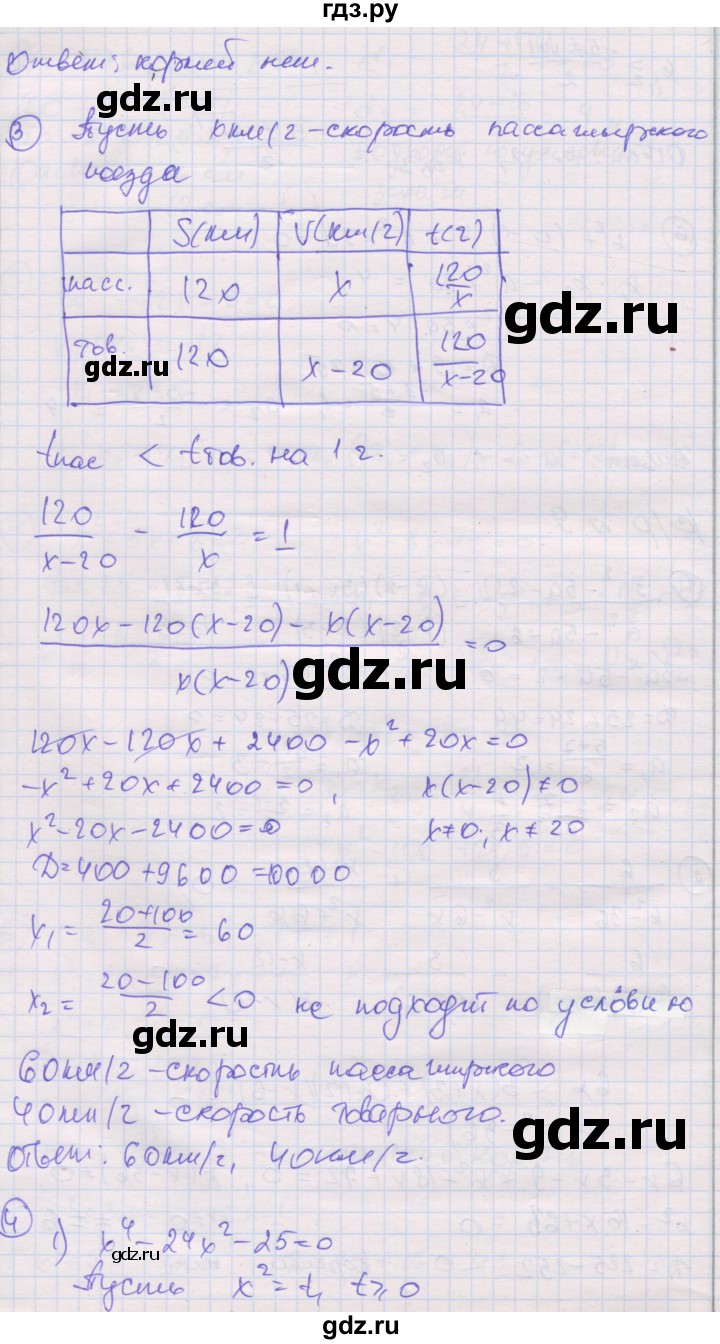 гдз.ру
Ответ: корней нет.
③ Пусть x км/г - скорость пассажирского
поезда
S(км) V(км/г) t(г)
пасс. 120 x 120/x
тов. 120 x-20 120/(x-20)
tпас < tтов. на 1 г.
120/(x-20) - 120/x = 1
(120x-120(x-20)-x(x-20))/(x(x-20)) = 0
120x-120x+2400-x²+20x=0
-x²+20x+2400=0, x(x-20)≠0
x²-20x-2400=0 x≠0; x≠20
D=400+9600=10000
x₁= (20+100)/2 = 60
x₂= (20-100)/2 <0 не подходит по условию
60км/г - скорость пассажирского
40км/г - скорость товарного.
Ответ: 60км/г, 40км/г.
④ 1) x⁴-24x²-25=0
Пусть x²=t, t≥0
gdz.ru
gdz.ru
gdz.ru
gdz.ru
gdz.ru
gdz.ru
gdz.ru
gdz.ru
гдз.ру